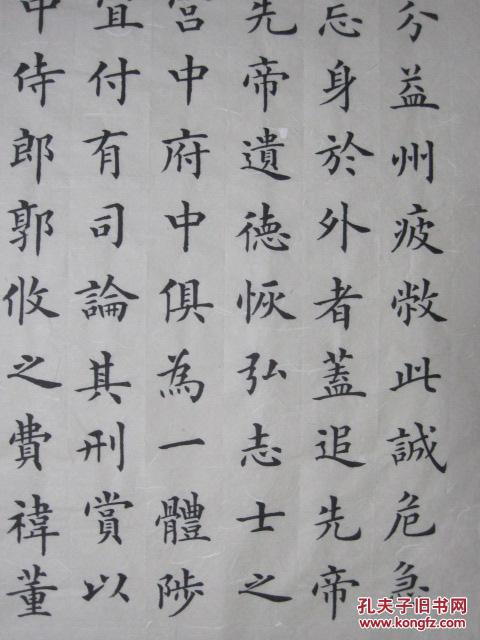 分益州疲弊此誠危急
忘身於外者蓋追先帝
先帝遺德恢弘志士之
宮中府中俱為一體陟
宜付有司論其刑賞以
中侍郎郭攸之費禕董
孔夫子旧书网
www.kongfz.com